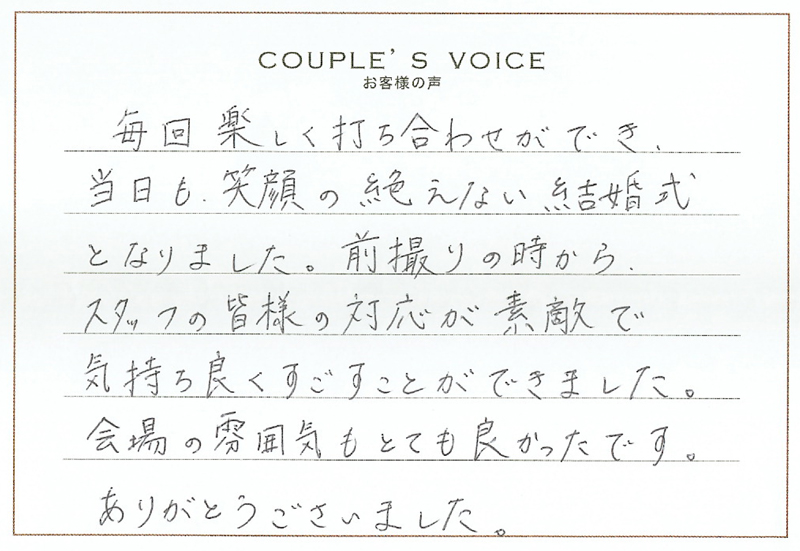 COUPLE'S VOICE
お客様の声
毎回楽しく打ち合わせができ、
当日も、笑顔の絶えない結婚式
となりました。前撮りの時から、
スタッフの皆様の対応が素敵で
気持ち良くすごすことができました。
会場の雰囲気もとても良かったです。
ありがとうございました。